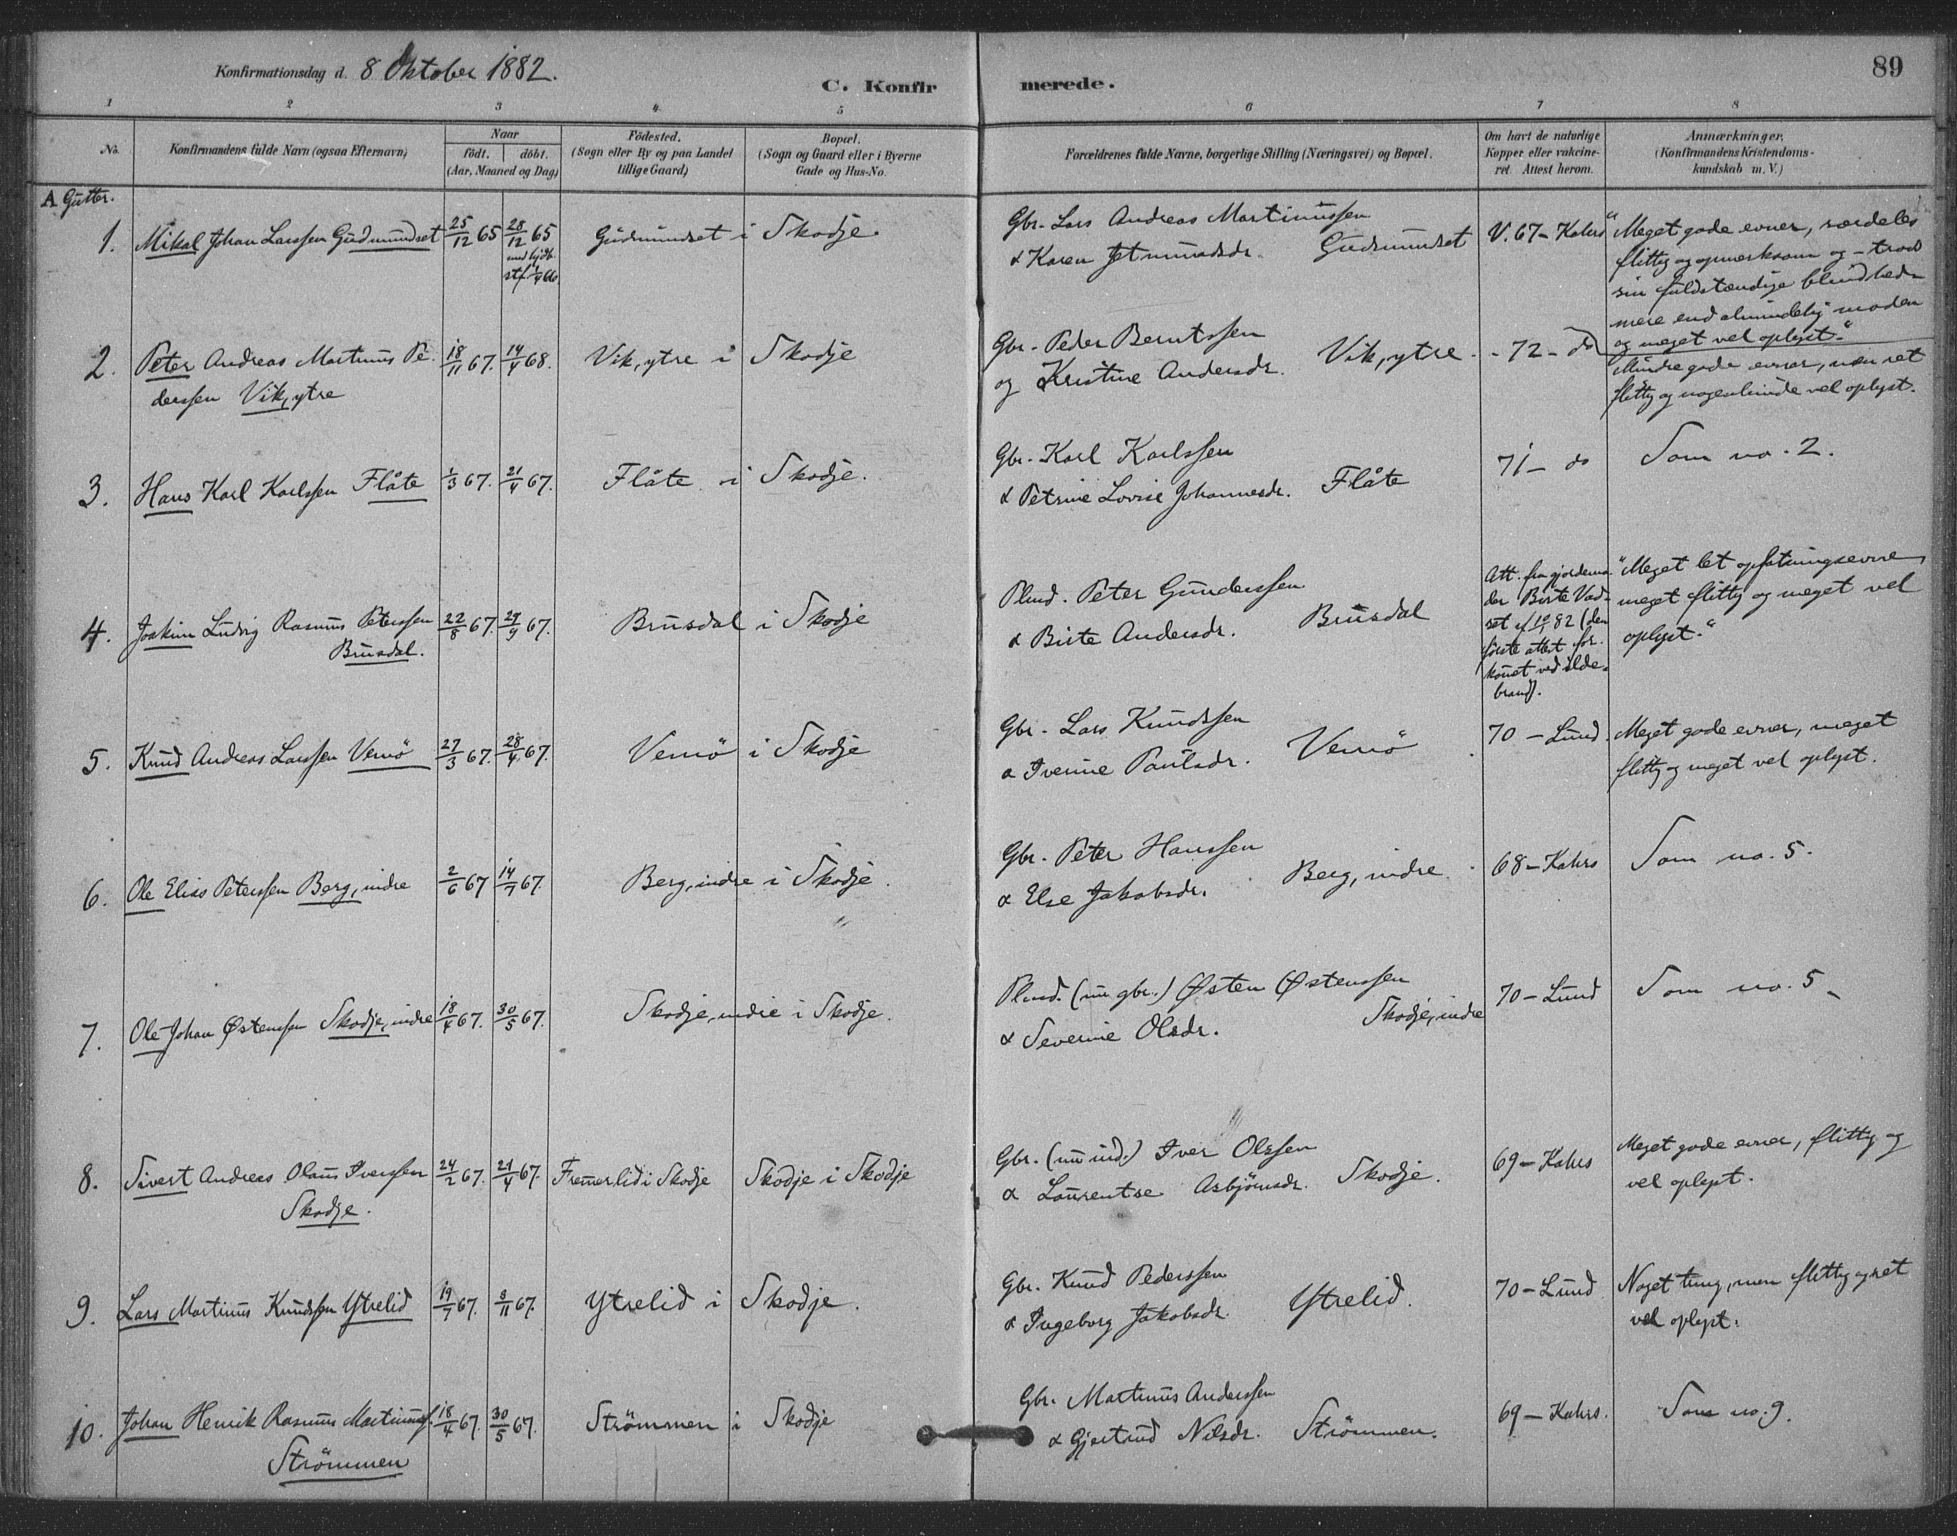 Konfirmationsdag d. 8 Oktober 1882.
C. Konfirmerede.
89
1 2 3 4 5 6 7 8
No.
Konfirmandens fulde Navn (ogsaa Efternavn)
Naar
födt. döbt.
(Aar, Maaned og Dag)
Födested.
(Sogn eller By og paa Landet
tillige Gaard)
Bopæl.
(Sogn og Gaard eller i Byerne
Gade og Hus-No.
Forældrenes fulde Navne, borgerlige Stilling (Næringsvei) og Bopæl.
Om havt de naturlige
Kopper eller vakcine-
ret. Attest herom.
Anmærkninger.
(Konfirmandens Kristendoms-
kundskab m. V.)
A Gutter.
1. Mikal Johan Larssen Gudmundset
25/12 65
28/12 65
stf. 1/4 66
Gudmundset i Skodje.
Gbr. Lars Andreas Martinussen
& Karen Jetmundsdr. Gudmundset
V. 67 - Kahrs
"Meget gode evner, særdeles
flittig og opmerksom og - trods
sin fuldstændige blindhed -
mere end almindelig moden
og meget vel oplyst."
2. Peter Andreas Martinus Pe-
derssen Vik, ytre
18/11 67.
14/4 68.
Vik, ytre i Skodje
Gbr. Peder Berntssen
og Kristine Andersdr. Vik, ytre.
- 72 - do
Mindre gode evner, men ret
flittig og nogenlunde vel oplyst.
3. Hans Karl Karlssen Flåte
1/3 67.
21/4 67.
Flåte i Skodje.
Gbr. Karl Karlssen
& Petrine Lovise Johannesdr. Flåte
71 - do
Som no. 2.
4. Joakim Ludvig Rasmus Peterssen
Brusdal.
22/8 67.
29/9 67.
Brusdal i Skodje
Plmd. Peter Gunderssen
& Birte Andersdr. Brusdal
Att. fra gjordemo-
der Birte Vad-
set af 10/1 82 (den
første attest for-
komet ved ilde-
brand).
"Meget let opfatningsevne,
meget flittig og meget vel
oplyst."
5. Knud Andreas Larssen Vemø
27/3 67.
28/4 67.
Vemø i Skodje
Gbr. Lars Knudssen
& Iverine Paulsdr. Vemø
70 - Lund.
Meget gode evner, meget
flittig og meget vel oplyst.
6. Ole Elias Peterssen Berg, indre
2/6 67
14/7 67.
Berg, indre i Skodje.
Gbr. Peter Hanssen
& Else Jakobsdr. Berg, indre.
68 - Kahrs
Som no. 5.
7. Ole Johan Østenssen Skodje, indre
18/4 67.
30/5 67.
Skodje, indre i Skodje.
Plmd. (nu gbr.) Østen Østenssen
& Severine Olsdr. Skodje, indre
70 - Lund
Som no. 5
8. Sivert Andreas Olaus Iverssen
Skodje.
24/2 67.
21/4 67.
Fremerlid i Skodje
Skodje i Skodje
Gbr. (nu ind.) Iver Olssen
& Laurentse Asbjörnsdr. Skodje.
69 - Kahrs
Meget gode evner, flittig og
vel oplyst.
9. Lars Martinus Knudssen Ytrelid
19/7 67.
8/11 67.
Ytrelid i Skodje.
Gbr. Knud Pederssen
& Ingeborg Jakobsdr. Ytrelid.
70 - Lund
Noget tung, men flittig og ret
vel oplyst.
10. Johan Henrik Rasmus Martinuss.
Strömmen
18/4 67.
30/5 67.
Strömmen i Skodje
Gbr. Martinus Anderssen
& Gjertrud Nilsdr. Strömmen.
69 - Kahrs.
Som no. 9.